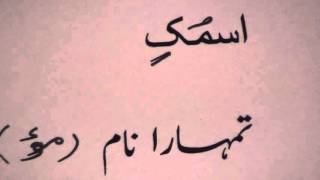 اسمُکِ
تمہارا نام (مؤ)